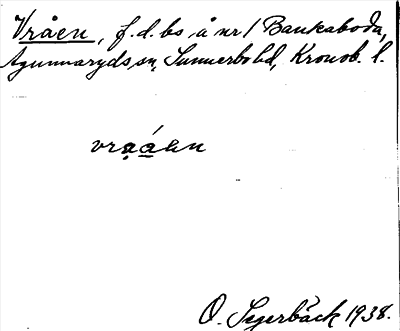 Vråen, f.d. bs å nr 1 Bankaboda,
Agunnaryds sn, Sunnerbo hd, Kronob. l.
vrạá̲en
O. Segerbäck 1938.